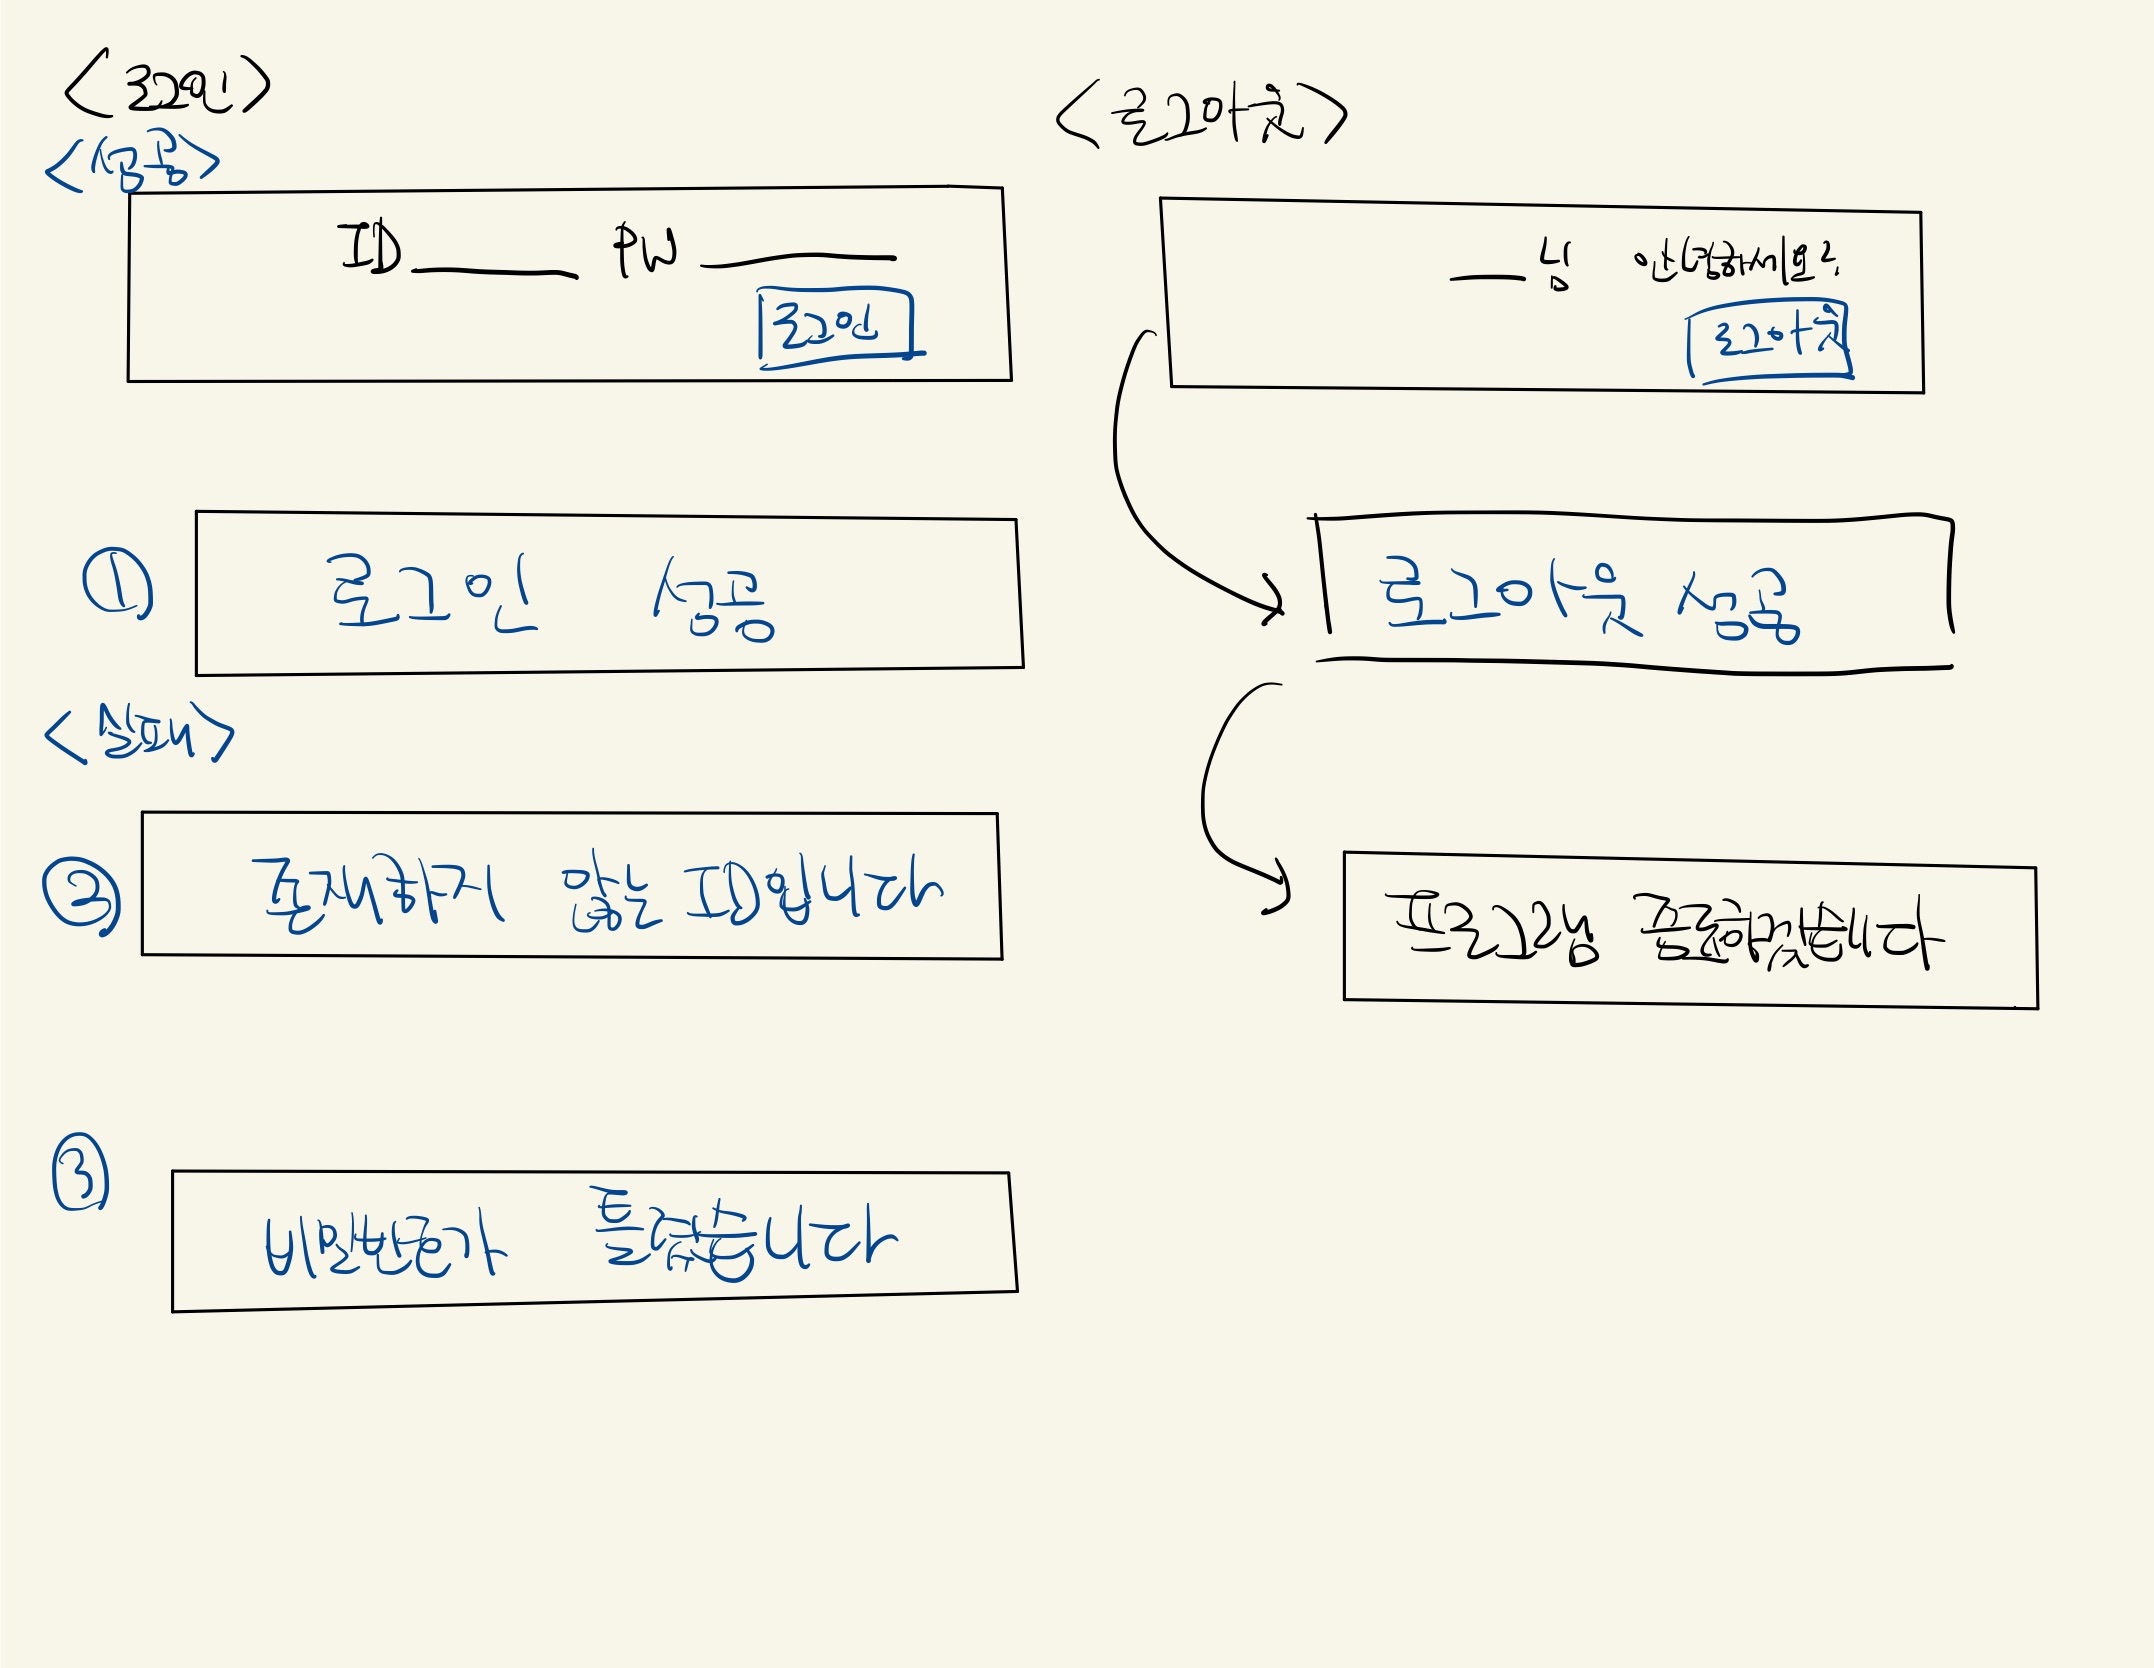 <로그인>
<성공>
ID____ PW ____
로그인
① 로그인 성공
<실패>
② 존재하지 않는 ID입니다
③ 비밀번호가 틀렸습니다
<로그아웃>
__님 안녕하세요?
로그아웃
로그아웃 성공
프로그램 종료하였습니다